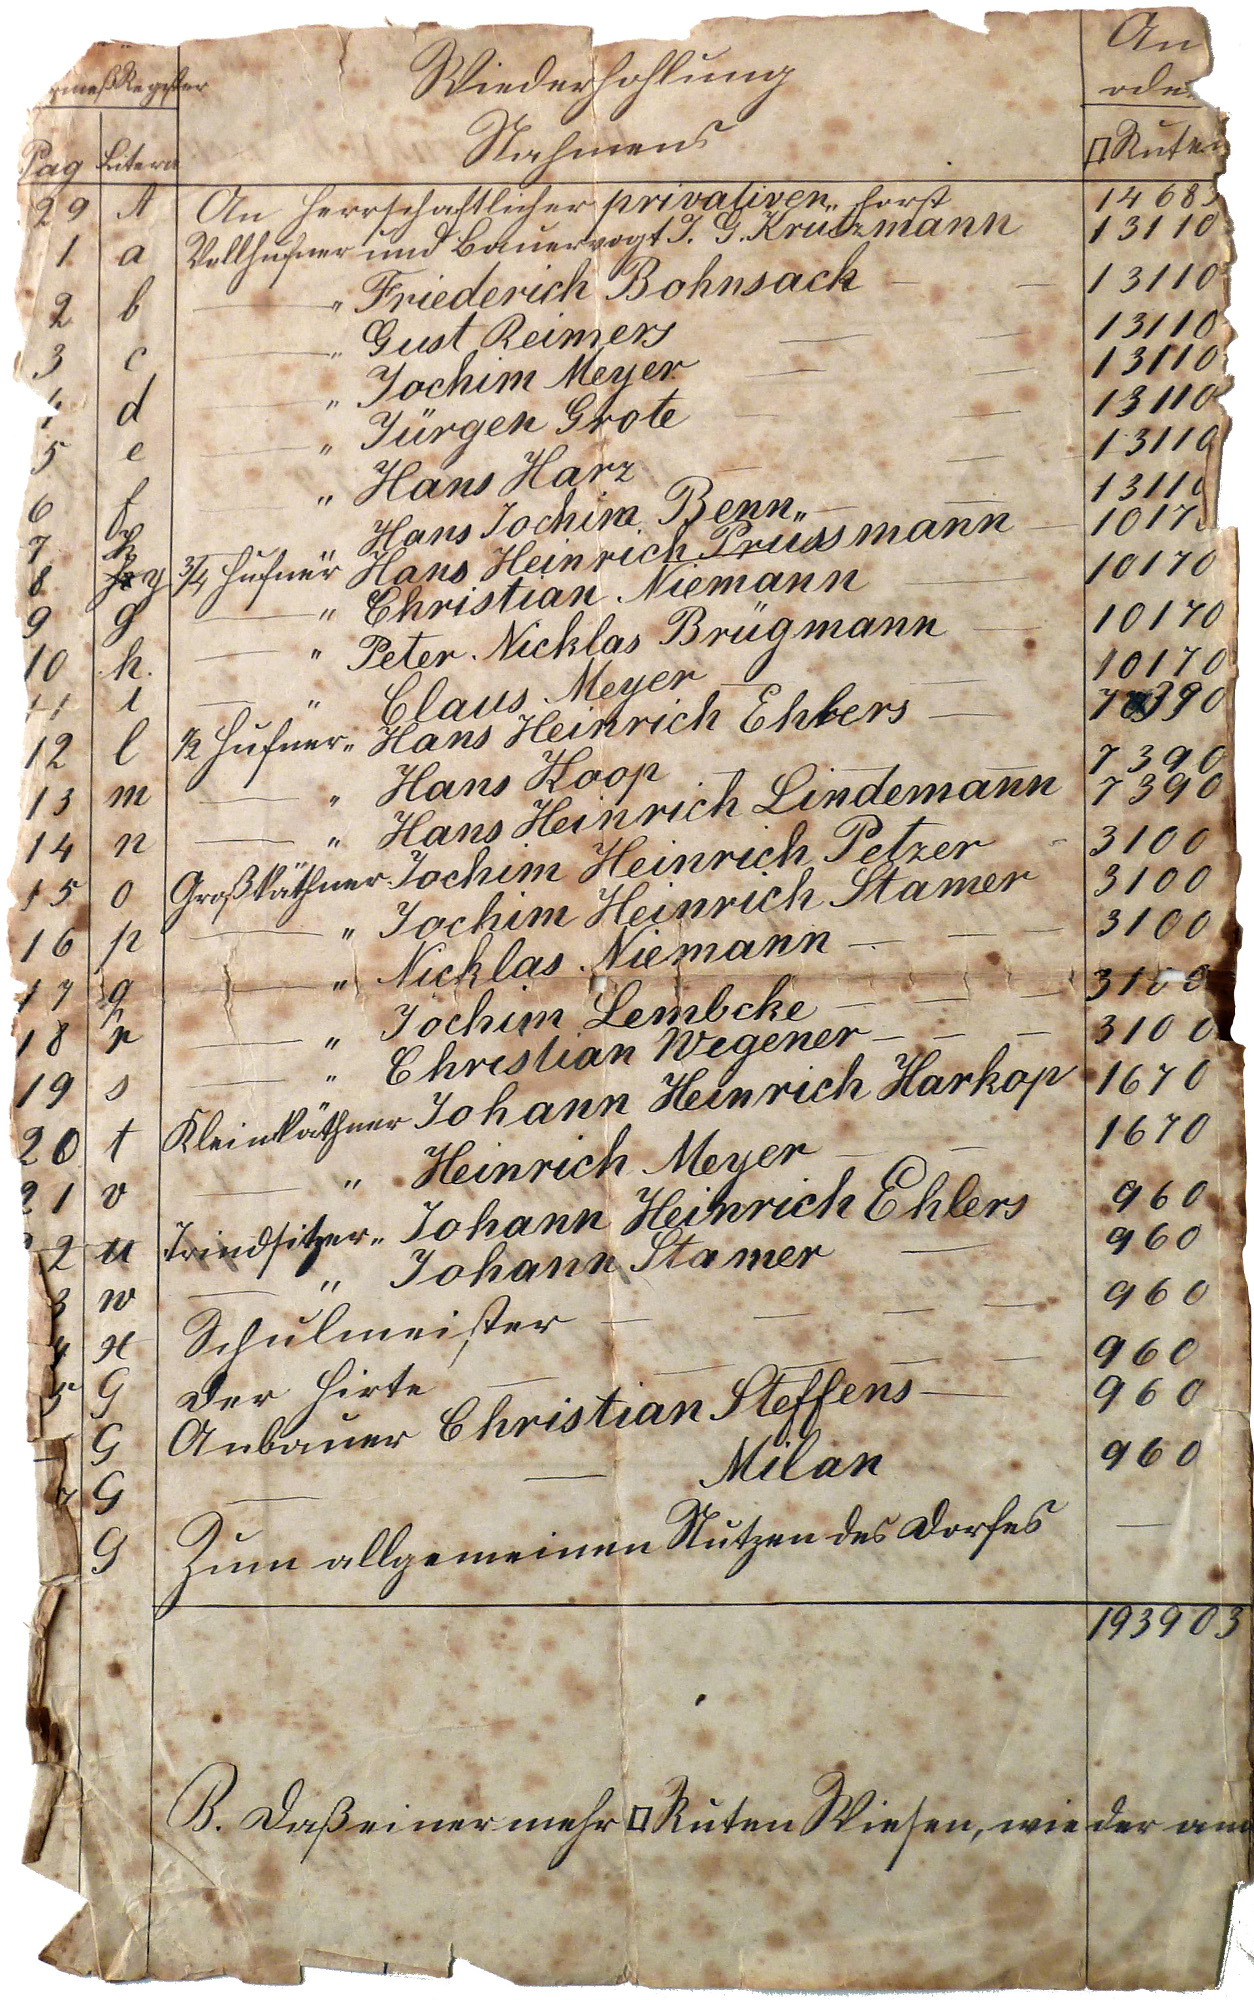 Wiederhohlung
An
ode
Register
Nahmens
□Ruten
Pag Litera
29 A An Herrschaftlicher privativen Forst 14683
1 a Vollhufner und Bauervogt J. G. Krützmann 13110
2 b — " Friederich Bohnsack — — 13110
3 c — " Gust Reimers — — 13110
d — " Jochim Meyer — — 13110
5 e — " Jürgen Grote — 13110
6 f " Hans Harz — — 13110
7 Hans Jochim Benn — — 1311
8 y 3/4 Hufner Hans Heinrich Prüssmann — 1017
9 g — " Christian Niemann — 10170
10 h. — " Peter Nicklas Brügmann — 10170
11 i — " Claus Meyer — — 10170
12 l 1/2 Hufner " Hans Heinrich Ehlers — 7390
13 m — " Hans Koop — — — 7390
14 n — " Hans Heinrich Lindemann 7390
15 o Großkäthner Jochim Heinrich Petzer - 3100
16 p — " Jochim Heinrich Stamer 3100
17 q — " Nicklas Niemann — — — 3100
18 r — " Jochim Lembcke — — — 3100
19 s — " Christian Wegener — — — 3100
20 t Kleinkäthner Johann Heinrich Harkop 1670
21 v — " Heinrich Meyer — — 1670
2 u Trindsitzer " Johann Heinrich Ehlers 960
3 w — " Johann Stamer — 960
x Schulmeister — — — — 960
5 G Der Hirte — — — — — 960
G Anbauer Christian Steffens — 960
7 G — — Milan 960
G Zum allgemeinen Nutzen des Dorfes —
193903
B. Daß einer mehr □Ruten Wiesen, wie der an